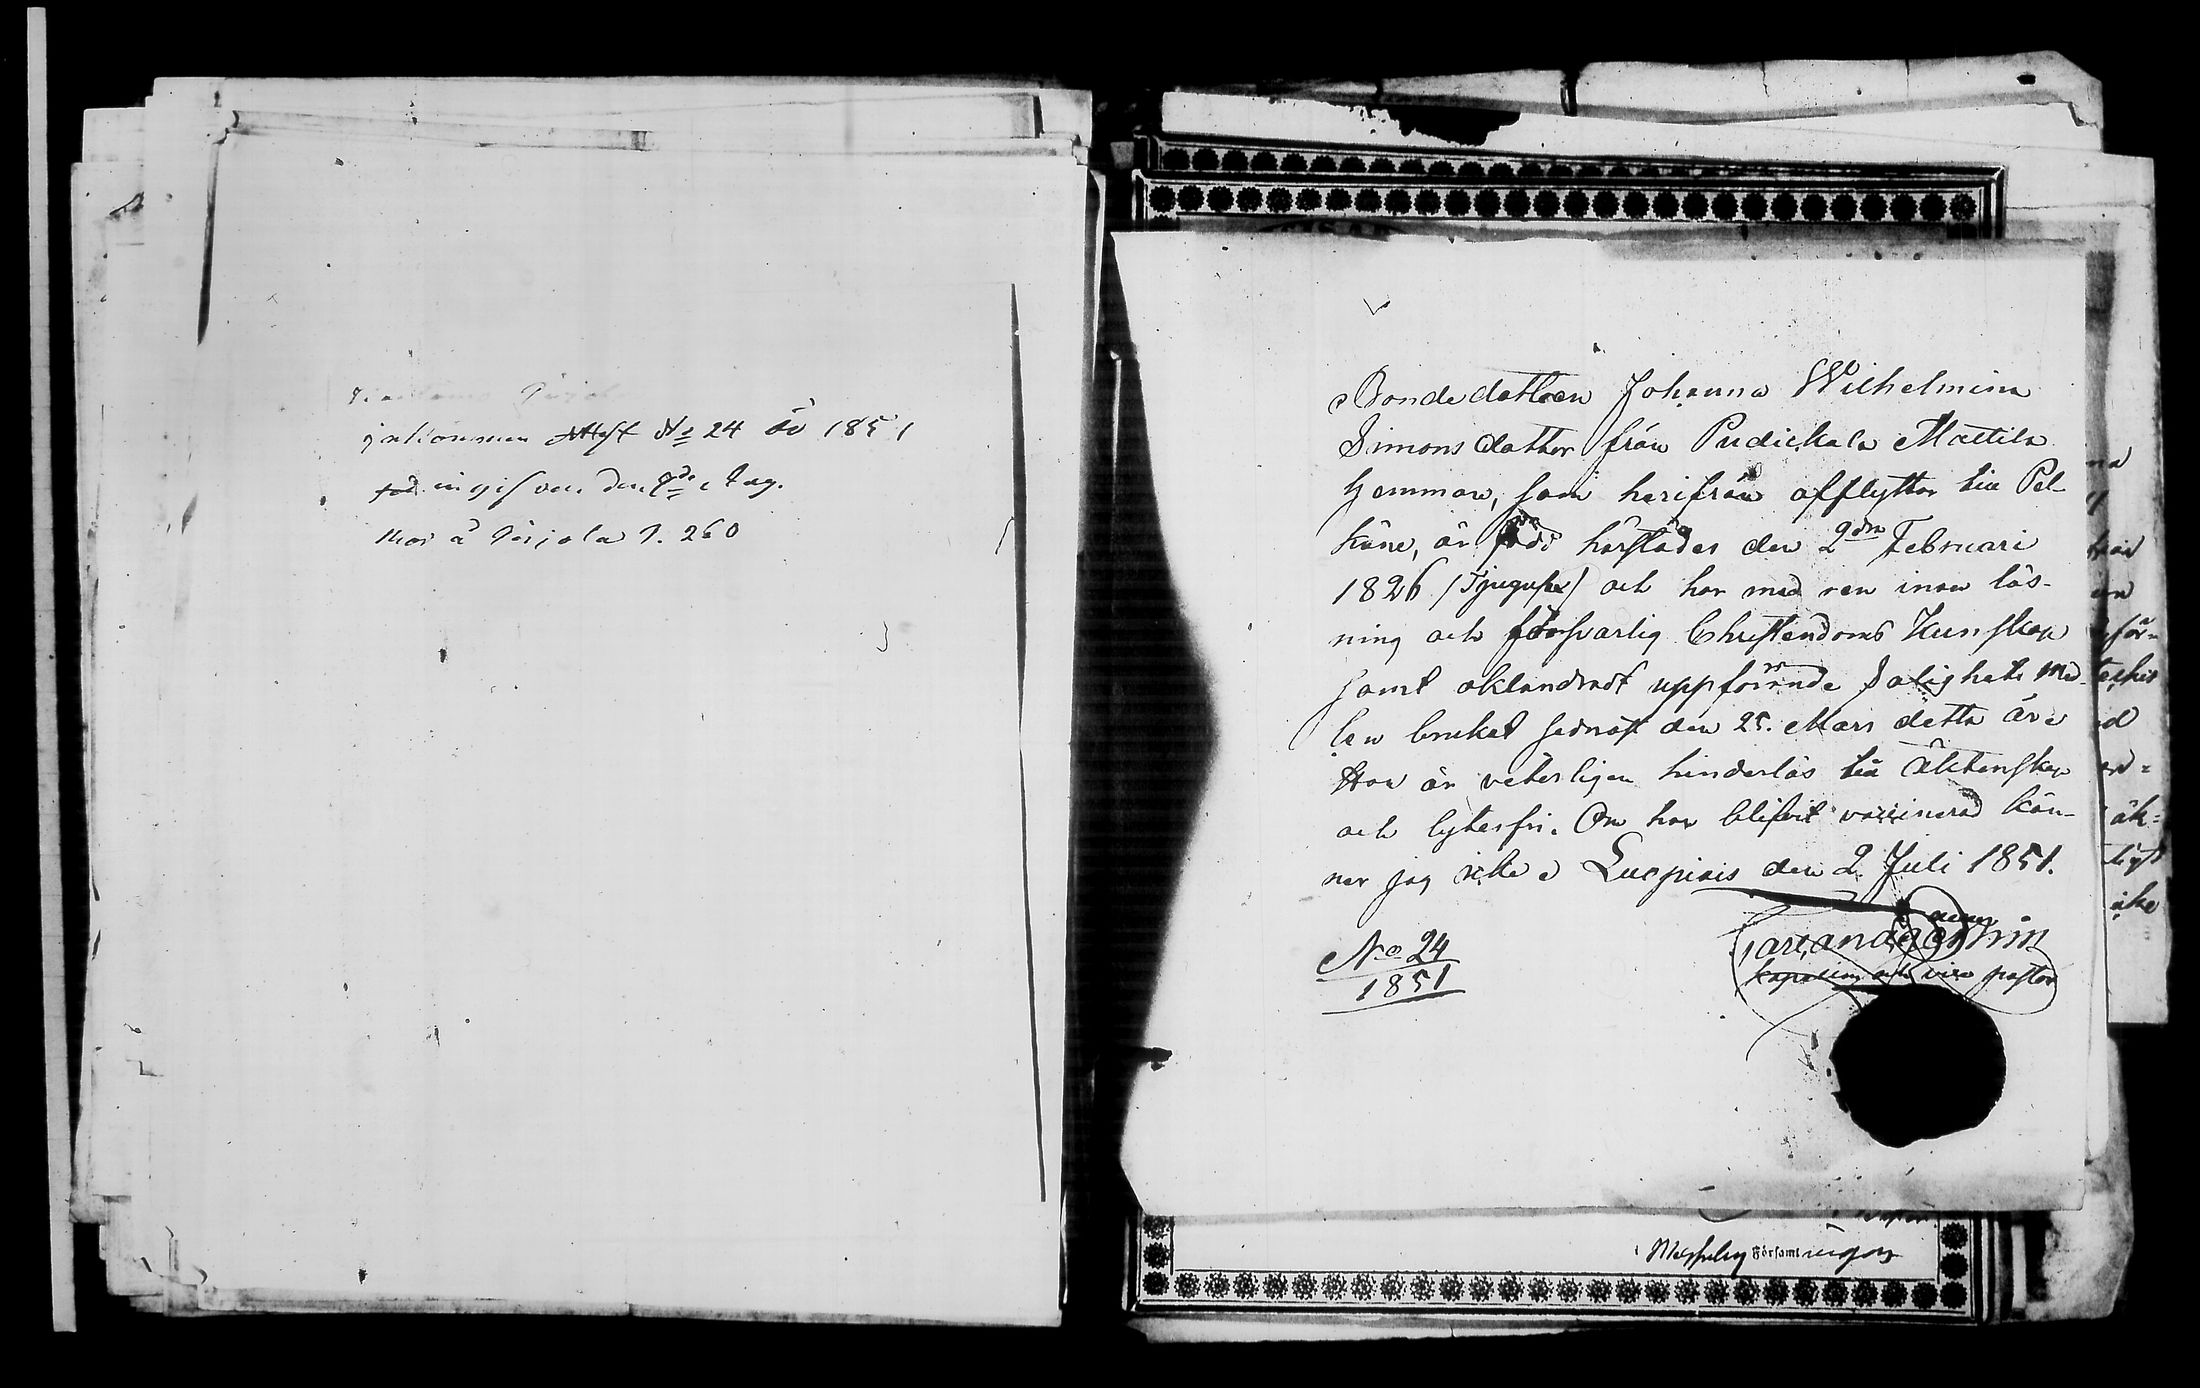 inkommen Attest No 24 år 1851
ingifven den 9de Aug.
Mor å Pirjola P. 260
Bondedottren Johanna Wilhelmina
Simonsdotter från Pudickala Mattila
hemman, som härifrån afflyttar till Pel-
käne, är född härstädes den 2dra Februari
1826 /Tjugusex/ och har med ren innan läs-
ning och försvarlig Christendoms Kunskap
samt oklandradt uppförande Salighets med-
len brukat sednast den 25. Mars detta år.
Hon är veterligen hinderlös till äktenskap
och lytesfri. Om hon blifvit vaccinerad kän-
ner jag icke. Luopiois den 2. Juli 1851.
No 24
1851
kapellan och vice pastor
för-
äk-
icke
Församlingen